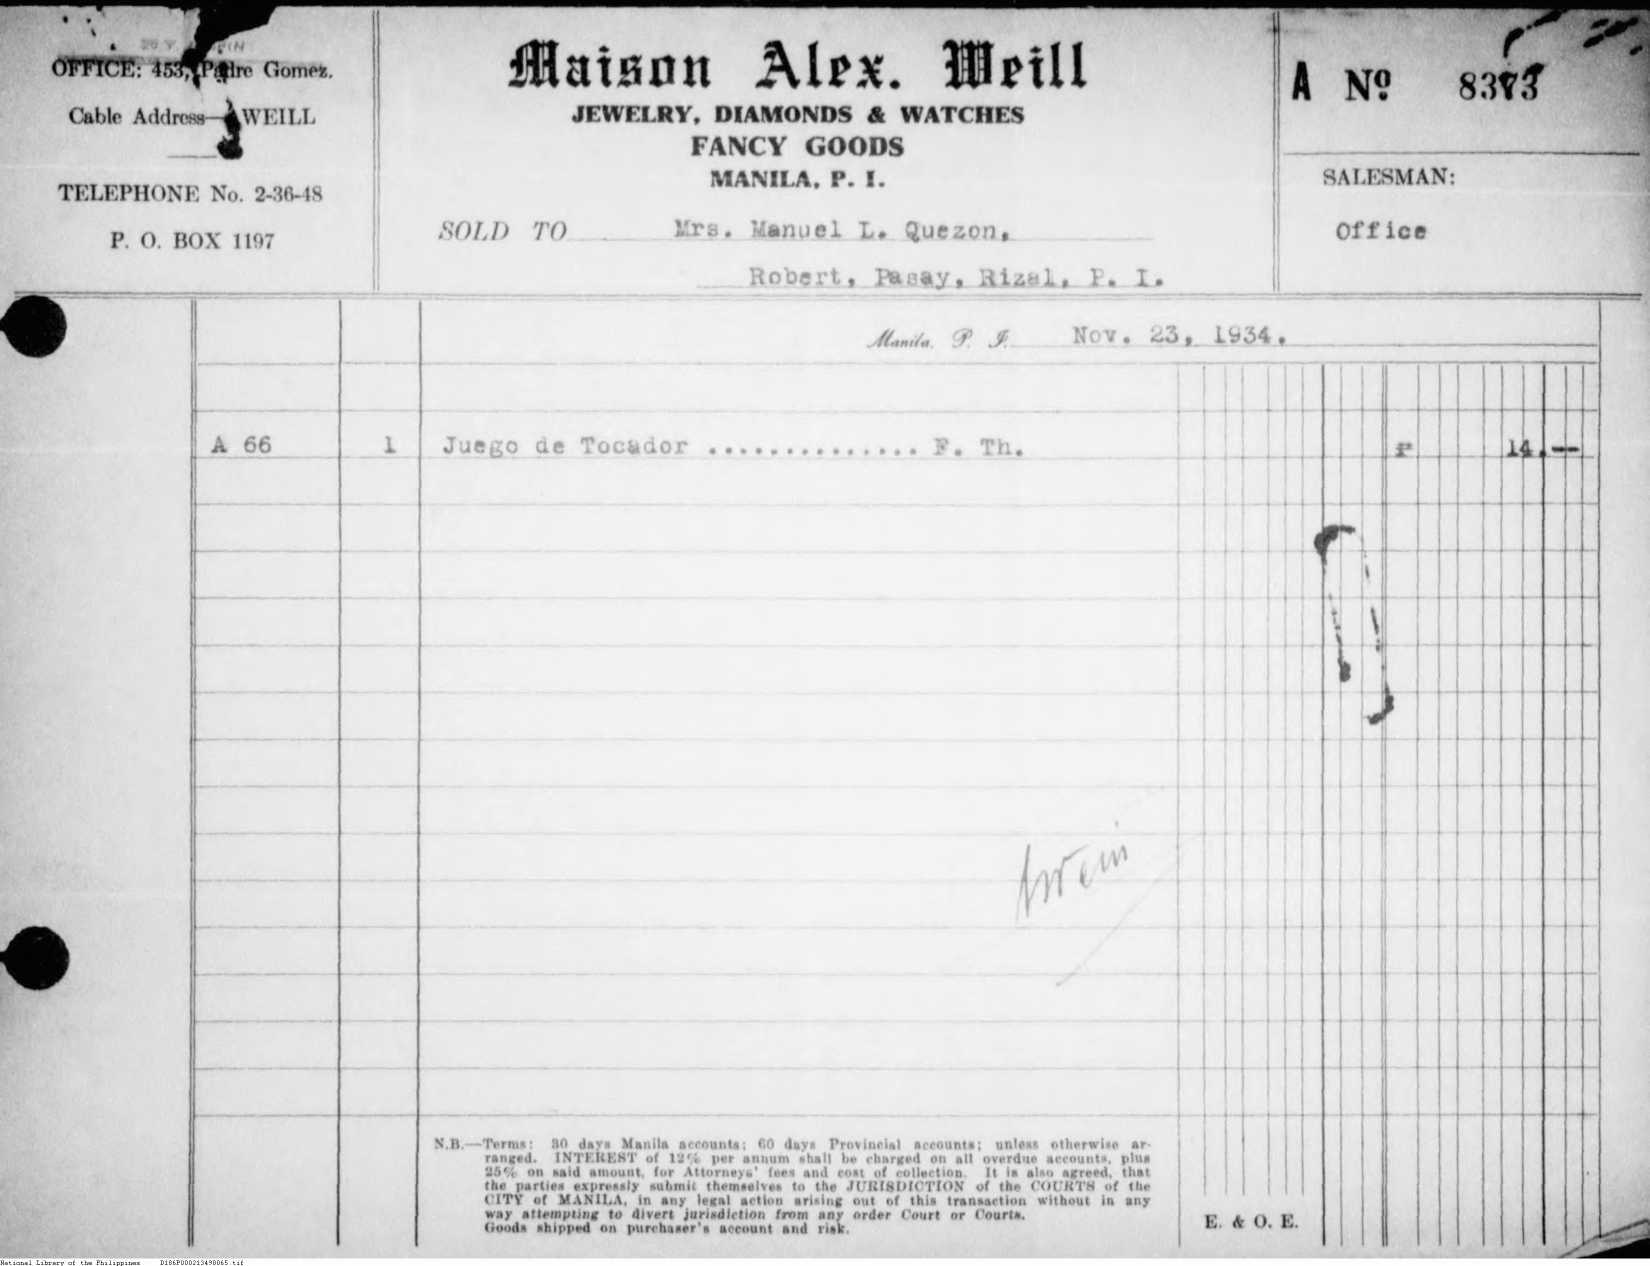 OFFICE: 453, Padre Gomez.
Cable Address—AWEILL
TELEPHONE No. 2-36-48
P. O. BOX 1197
Maison Alex. Weill
JEWELRY, DIAMONDS & WATCHES
FANCY GOODS
MANILA, P. I.
SOLD TO Mrs. Manuel L. Quezon,
Robert, Pasay, Rizal, P. I.
A Nº 8373
SALESMAN:
Office
Manila, P. I. Nov. 23, 1934.
A 66 1 Juego de Tocador .............. F. Th. P 14.--
N.B.—Terms: 30 days Manila accounts; 60 days Provincial accounts; unless otherwise ar-
ranged. INTEREST of 12% per annum shall be charged on all overdue accounts, plus
25% on said amount, for Attorneys' fees and cost of collection. It is also agreed, that
the parties expressly submit themselves to the JURISDICTION of the COURTS of the
CITY of MANILA, in any legal action arising out of this transaction without in any
way attempting to divert jurisdiction from any order Court or Courts.
Goods shipped on purchaser's account and risk.
E. & O. E.
National Library of the Philippines D186P000213498065.tif